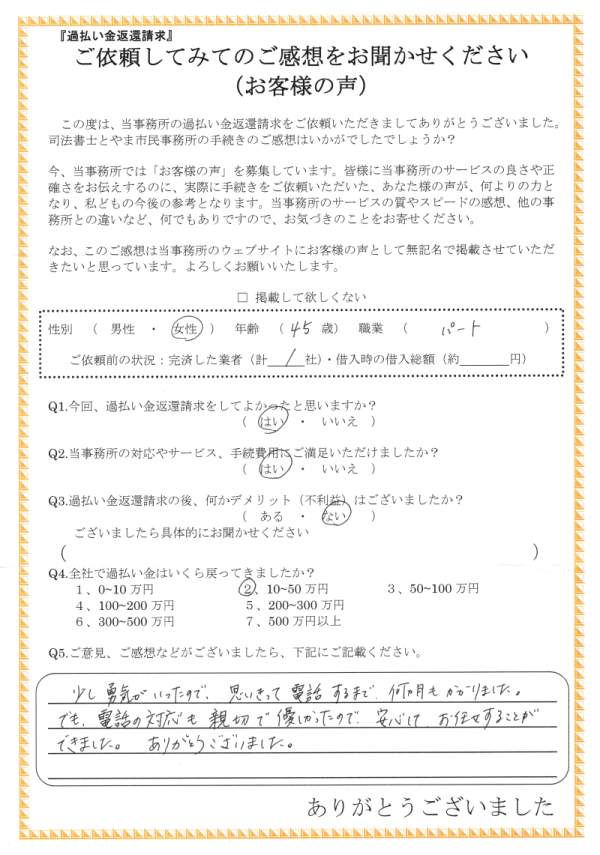 『過払い金返還請求』
ご依頼してみてのご感想をお聞かせください
（お客様の声）
この度は、当事務所の過払い金返還請求をご依頼いただきましてありがとうございました。
司法書士とやま市民事務所の手続きのご感想はいかがでしたでしょうか？
今、当事務所では「お客様の声」を募集しています。皆様に当事務所のサービスの良さや正
確さをお伝えするのに、実際に手続きをご依頼いただいた、あなた様の声が、何よりの力と
なり、私どもの今後の参考となります。当事務所のサービスの質やスピードの感想、他の事
務所との違いなど、何でもありですので、お気づきのことをお寄せください。
なお、このご感想は当事務所のウェブサイトにお客様の声として無記名で掲載させていただ
きたいと思っています。よろしくお願いいたします。
□ 掲載して欲しくない
性別 （ 男性 ・ 女性 ） 年齢 （ 45 歳） 職業 （ パート ）
ご依頼前の状況：完済した業者（計 1 社）・借入時の借入総額（約 円）
Q1.今回、過払い金返還請求をしてよかったと思いますか？
（ はい ・ いいえ ）
Q2.当事務所の対応やサービス、手続費用にご満足いただけましたか？
（ はい ・ いいえ ）
Q3.過払い金返還請求の後、何かデメリット（不利益）はございましたか？
（ ある ・ ない ）
ございましたら具体的にお聞かせください
（ ）
Q4.全社で過払い金はいくら戻ってきましたか？
1、0~10 万円 2、10~50 万円 3、50~100 万円
4、100~200 万円 5、200~300 万円
6、300~500 万円 7、500 万円以上
Q5.ご意見、ご感想などがございましたら、下記にご記載ください。
少し勇気がいったので、思いきって電話するまで、何ヶ月もかかりました。
でも、電話の対応も親切で優しかったので、安心して お任せすることが
できました。 ありがとうございました。
ありがとうございました